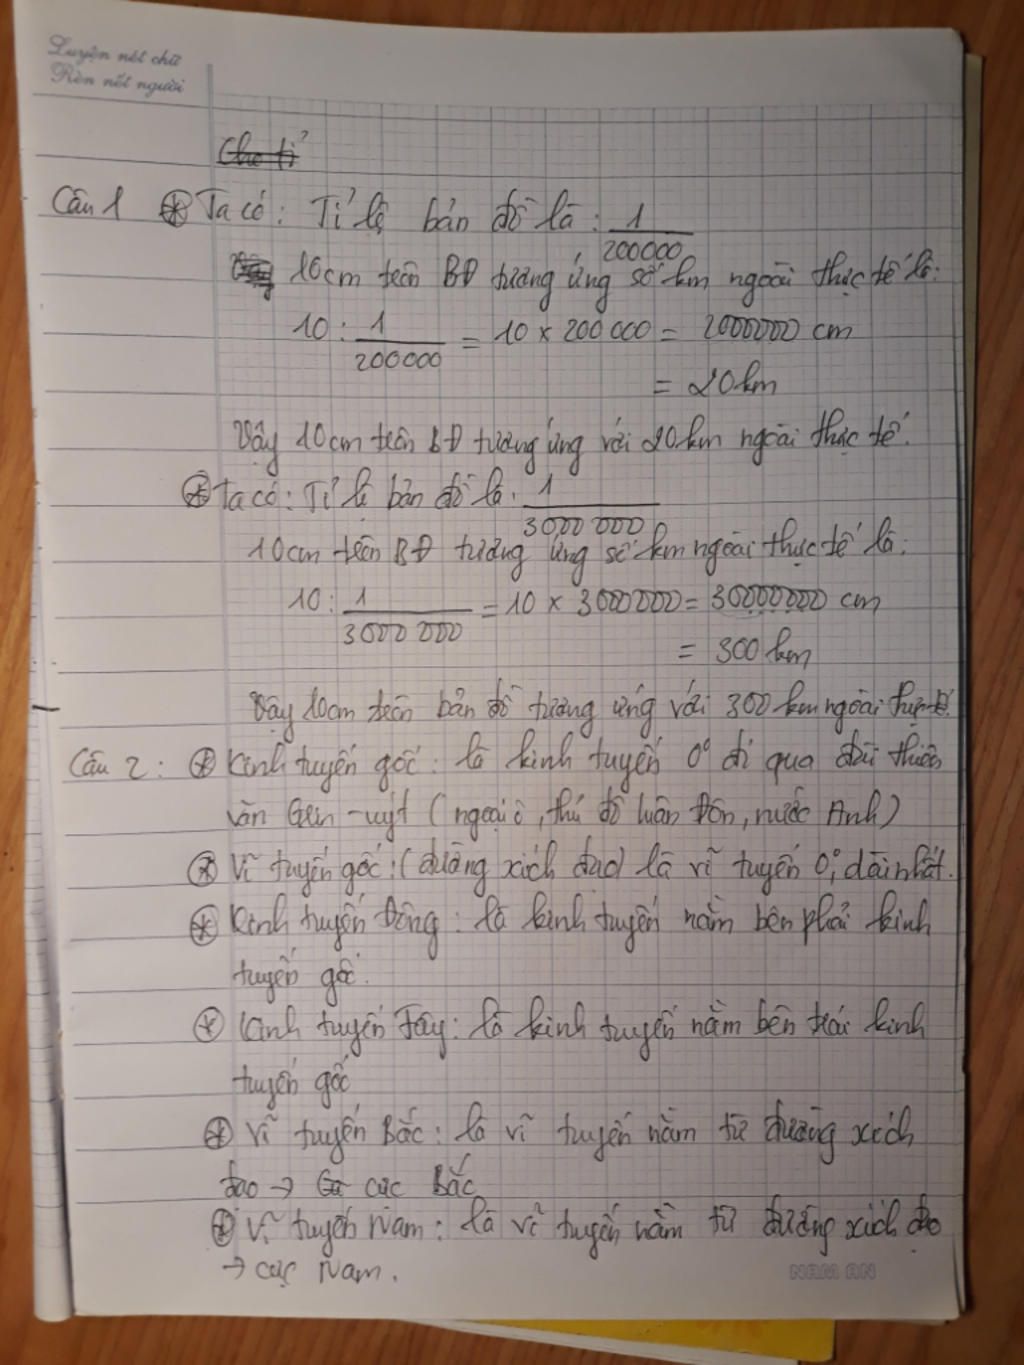 Luyện nét chữ
Rèn nết người
Cho tỉ
Câu 1 ⊛ Ta có: Tỉ lệ bản đồ là: 1/200000
10cm trên BĐ tương ứng số km ngoài thực tế là:
10 : 1/200000 = 10 x 200 000 = 2000000 cm
= 20km
Vậy 10cm trên BĐ tương ứng với 20km ngoài thực tế.
⊛ Ta có: Tỉ lệ bản đồ là: 1/3000 000
10cm trên BĐ tương ứng số km ngoài thực tế là:
10 : 1/3000 000 = 10 x 3000000 = 30000000 cm
= 300 km
Vậy 10cm trên bản đồ tương ứng với 300 km ngoài thực tế.
Câu 2: ⊛ Kinh tuyến gốc: là kinh tuyến 0° đi qua đài thiên
văn Grin-uýt (ngoại ô, thủ đô Luân Đôn, nước Anh)
⊛ Vĩ tuyến gốc: (đường xích đạo) là vĩ tuyến 0°, dài nhất.
⊛ Kinh tuyến Đông: là kinh tuyến nằm bên phải kinh
tuyến gốc.
⊛ Kinh tuyến Tây: là kinh tuyến nằm bên trái kinh
tuyến gốc
⊛ Vĩ tuyến Bắc: là vĩ tuyến nằm từ đường xích
đạo → cực Bắc
⊛ Vĩ tuyến Nam: là vĩ tuyến nằm từ đường xích đạo
→ cực Nam.
NAM AN